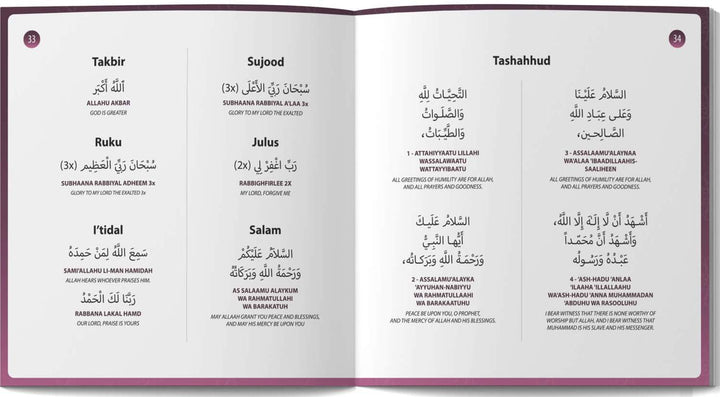 33
Takbir
اَللَّهُ أَكْبَر
ALLAHU AKBAR
GOD IS GREATER
Ruku
سُبْحَانَ رَبِّيَ الْعَظِيمِ (3x)
SUBHAANA RABBIYAL ADHEEM 3x
GLORY TO MY LORD THE EXALTED
I’tidal
سَمِعَ اللَّهُ لِمَنْ حَمِدَهُ
SAMI'ALLAHU LI-MAN HAMIDAH
ALLAH HEARS WHOEVER PRAISES HIM.
رَبَّنَا لَكَ الْحَمْدُ
RABBANA LAKAL HAMD
OUR LORD, PRAISE IS YOURS
Sujood
سُبْحَانَ رَبِّيَ الأَعْلَى (3x)
SUBHAANA RABBIYAL A'LAA 3x
GLORY TO MY LORD THE EXALTED
Julus
رَبِّ اغْفِرْ لِي (2x)
RABBIGHFIRLEE 2X
MY LORD, FORGIVE ME
Salam
السَّلاَمُ عَلَيْكُمْ
وَرَحْمَةُ اللَّهِ وَبَرَكَاتُهُ
AS SALAAMU ALAYKUM
WA RAHMATULLAHI
WA BARAKATUH
MAY ALLAH GRANT YOU PEACE AND BLESSINGS,
AND MAY HIS MERCY BE UPON YOU
34
Tashahhud
التَّحِيَّاتُ لِلَّهِ
وَالصَّلَوَاتُ
وَالطَّيِّبَاتُ،
1 - ATTAHIYYAATU LILLAHI
WASSALAWAATU
WATTAYYIBAATU
ALL GREETINGS OF HUMILITY ARE FOR ALLAH,
AND ALL PRAYERS AND GOODNESS.
السَّلاَمُ عَلَيكَ
أَيُّهَا النَّبِيُّ
وَرَحْمَةُ اللَّهِ وَبَرَكاتُهُ،
2 - ASSALAMU'ALAYKA
'AYYUHAN-NABIYYU
WA RAHMATULLAAHI
WA BARAKAATUHU
PEACE BE UPON YOU, O PROPHET,
AND THE MERCY OF ALLAH AND HIS BLESSINGS.
السَّلاَمُ عَلَيْنَا
وَعَلى عِبَادِ اللَّهِ
الصَّالِحين،
3 - ASSALAAMU'ALAYNAA
WA'ALAA 'IBAADILLAAHIS-
SAALIHEEN
ALL GREETINGS OF HUMILITY ARE FOR ALLAH,
AND ALL PRAYERS AND GOODNESS.
أَشْهَدُ أَنْ لَا إِلَهَ إِلَّا اللَّهُ،
وَأَشْهَدُ أَنَّ مُحَمَّداً
عَبْدُهُ وَرَسُولُهُ
4 - 'ASH-HADU 'ANLAA
'ILAAHA 'ILLALLAAHU
WA'ASH-HADU 'ANNA MUHAMMADAN
'ABDUHU WA RASOOLUHU
I BEAR WITNESS THAT THERE IS NONE WORTHY OF
WORSHIP BUT ALLAH, AND I BEAR WITNESS THAT
MUHAMMAD IS HIS SLAVE AND HIS MESSENGER.